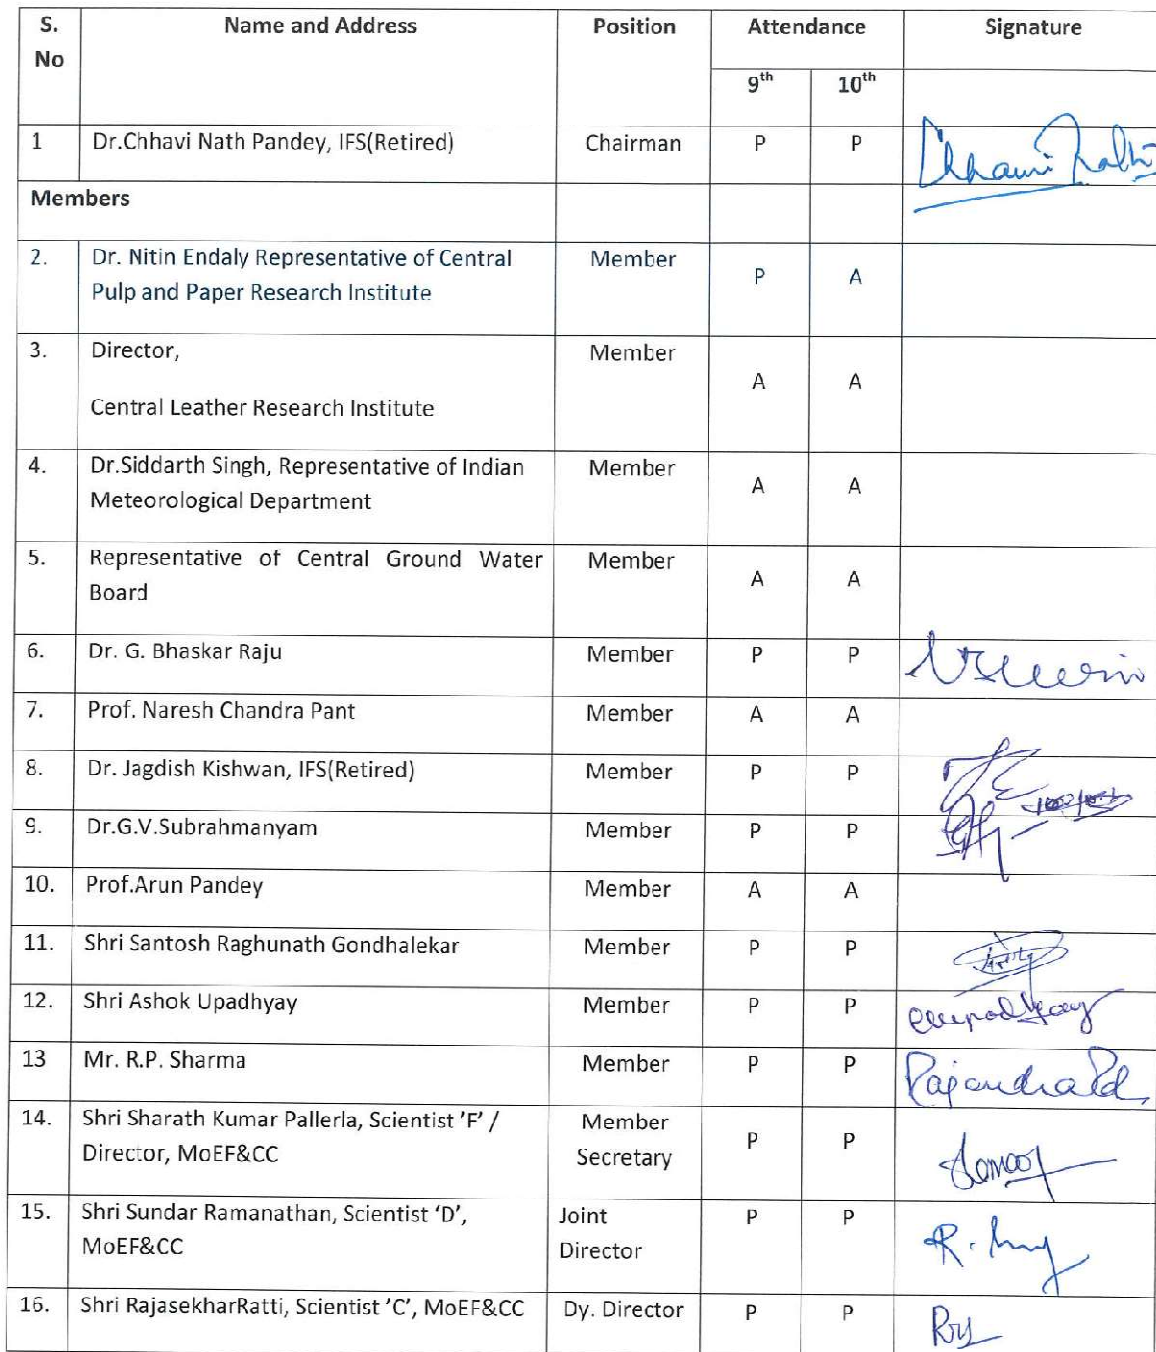 S. No Name and Address Position Attendance Signature
9th 10th
1 Dr.Chhavi Nath Pandey, IFS(Retired) Chairman P P
Members
2. Dr. Nitin Endaly Representative of Central Member P A
Pulp and Paper Research Institute
3. Director, Member A A
Central Leather Research Institute
4. Dr.Siddarth Singh, Representative of Indian Member A A
Meteorological Department
5. Representative of Central Ground Water Member A A
Board
6. Dr. G. Bhaskar Raju Member P P
7. Prof. Naresh Chandra Pant Member A A
8. Dr. Jagdish Kishwan, IFS(Retired) Member P P
9. Dr.G.V.Subrahmanyam Member P P
10. Prof.Arun Pandey Member A A
11. Shri Santosh Raghunath Gondhalekar Member P P
12. Shri Ashok Upadhyay Member P P
13 Mr. R.P. Sharma Member P P
14. Shri Sharath Kumar Pallerla, Scientist 'F' / Member P P
Director, MoEF&CC Secretary
15. Shri Sundar Ramanathan, Scientist 'D', Joint P P
MoEF&CC Director
16. Shri RajasekharRatti, Scientist 'C', MoEF&CC Dy. Director P P